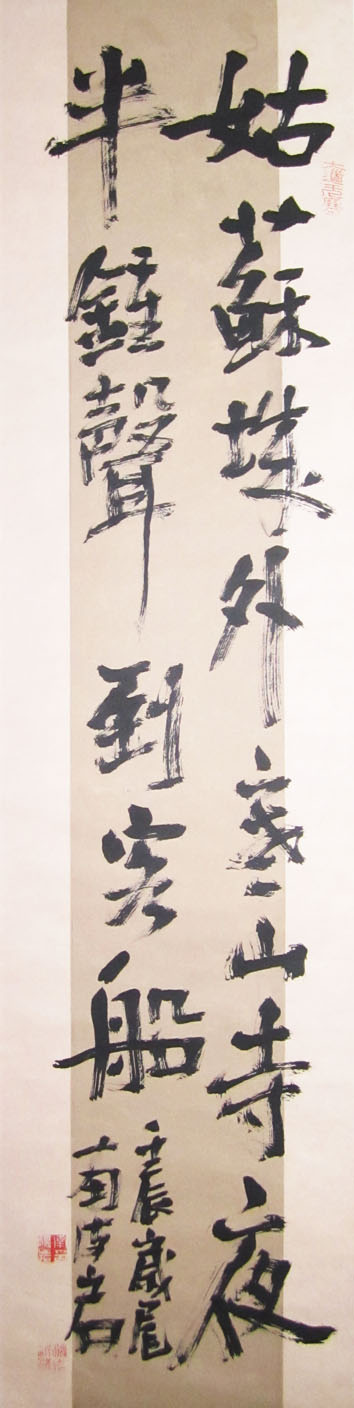 姑蘇城外寒山寺夜
半鍾聲到客船
壬辰歲尾
南皮